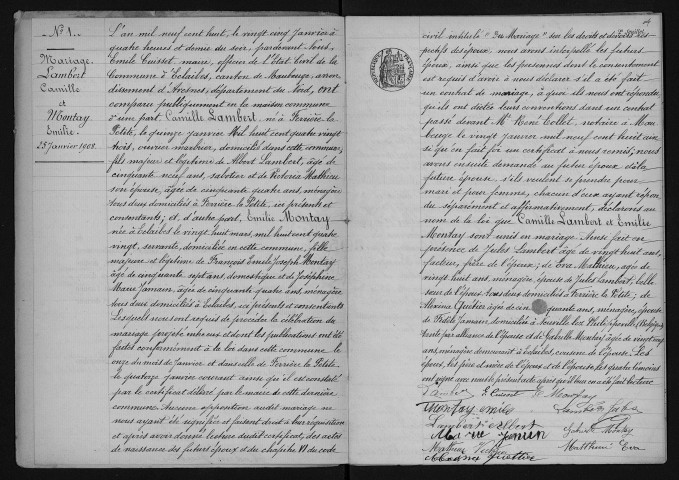 N° 1.
Mariage
Lambert
Camille
et
Montay
Emilie
25 Janvier 1908.
L'an mil neuf cent huit, le vingt cinq Janvier à
quatre heures et demie du soir, pardevant Nous,
Emile Cuisset maire, officier de l'Etat Civil de la
Commune d'Eclaibes, canton de Maubeuge, arron-
dissement d'Avesnes, département du Nord, ont
comparu publiquement en la maison commune
d'une part Camille Lambert, né à Ferrière la
Petite, le quinze janvier mil huit cent quatre vingt
trois, ouvrier marbrier, domicilié dans cette commune,
fils majeur et légitime de Albert Lambert, âgé de
cinquante neuf ans, sabotier et de Victoria Mathieu
son épouse, âgée de cinquante quatre ans, ménagère
tous deux domiciliés à Ferrière la Petite, ici présents et
consentants; et, d'autre part, Emilie Montay
née à Eclaibes le vingt huit mars, mil huit cent quatre
vingt, servante, domiciliée en cette commune, fille
majeure et légitime de François Emile Joseph Montay
âgé de cinquante sept ans, domestique et de Joséphine
Marie Jamain, âgée de cinquante quatre ans, ménagère
tous deux domiciliés à Eclaibes, ici présents et consentants
Lesquels nous ont requis de procéder à la célébration du
mariage projeté entre eux et dont les publications ont été
faites conformément à la loi dans cette commune le
onze du mois de Janvier et dans celle de Ferrière la Petite
le quatorze janvier courant ainsi qu'il est constaté
par le certificat délivré par le maire de cette dernière
commune. Aucune opposition audit mariage ne
nous ayant été signifiée et faisant droit à leur réquisition
et après avoir donné lecture dudit certificat, des actes
de naissance des futurs époux et du chapitre VI du code
4
civil intitulé "Du Mariage" sur les droits et devoirs res-
pectifs des époux, nous avons interpellé les futurs
époux, ainsi que les personnes dont le consentement
est requis d'avoir à nous déclarer s'il a été fait
un contrat de mariage, à quoi ils nous ont répondu
qu'ils ont réglé leurs conventions dans un contrat
passé devant Me René Collet, notaire à Mau
beuge le vingt janvier mil neuf cent huit ainsi
que en fait foi un certificat à nous remis; nous
avons ensuite demandé au futur époux et à la
future épouse, s'ils veulent se prendre pour
mari et pour femme, chacun d'eux ayant répon
du séparément et affirmativement, déclarons au
nom de la loi que Camille Lambert et Emilie
Montay sont unis en mariage. Ainsi fait en
présence de Jules Lambert âgé de vingt huit ans,
facteur, frère de l'époux; de Eva Mathieu, âgée de
vingt huit ans, ménagère, épouse de Jules Lambert, belle
soeur de l'époux tous deux domiciliés à Ferrière la Petite; de
quarante ans, ménagère, épouse
ménagère domiciliée à Eclaibes, cousine de l'épouse. Les
époux, les père et mère de l'époux et de l'épouse, et les quatre témoins
ont signé avec nous le présent acte après qu'il leur en a été fait lecture
E. Cuisset E. Montay
Montay emile
Lambert Jules
Lambert Albert
Marie Jamin
Matthieu Eva